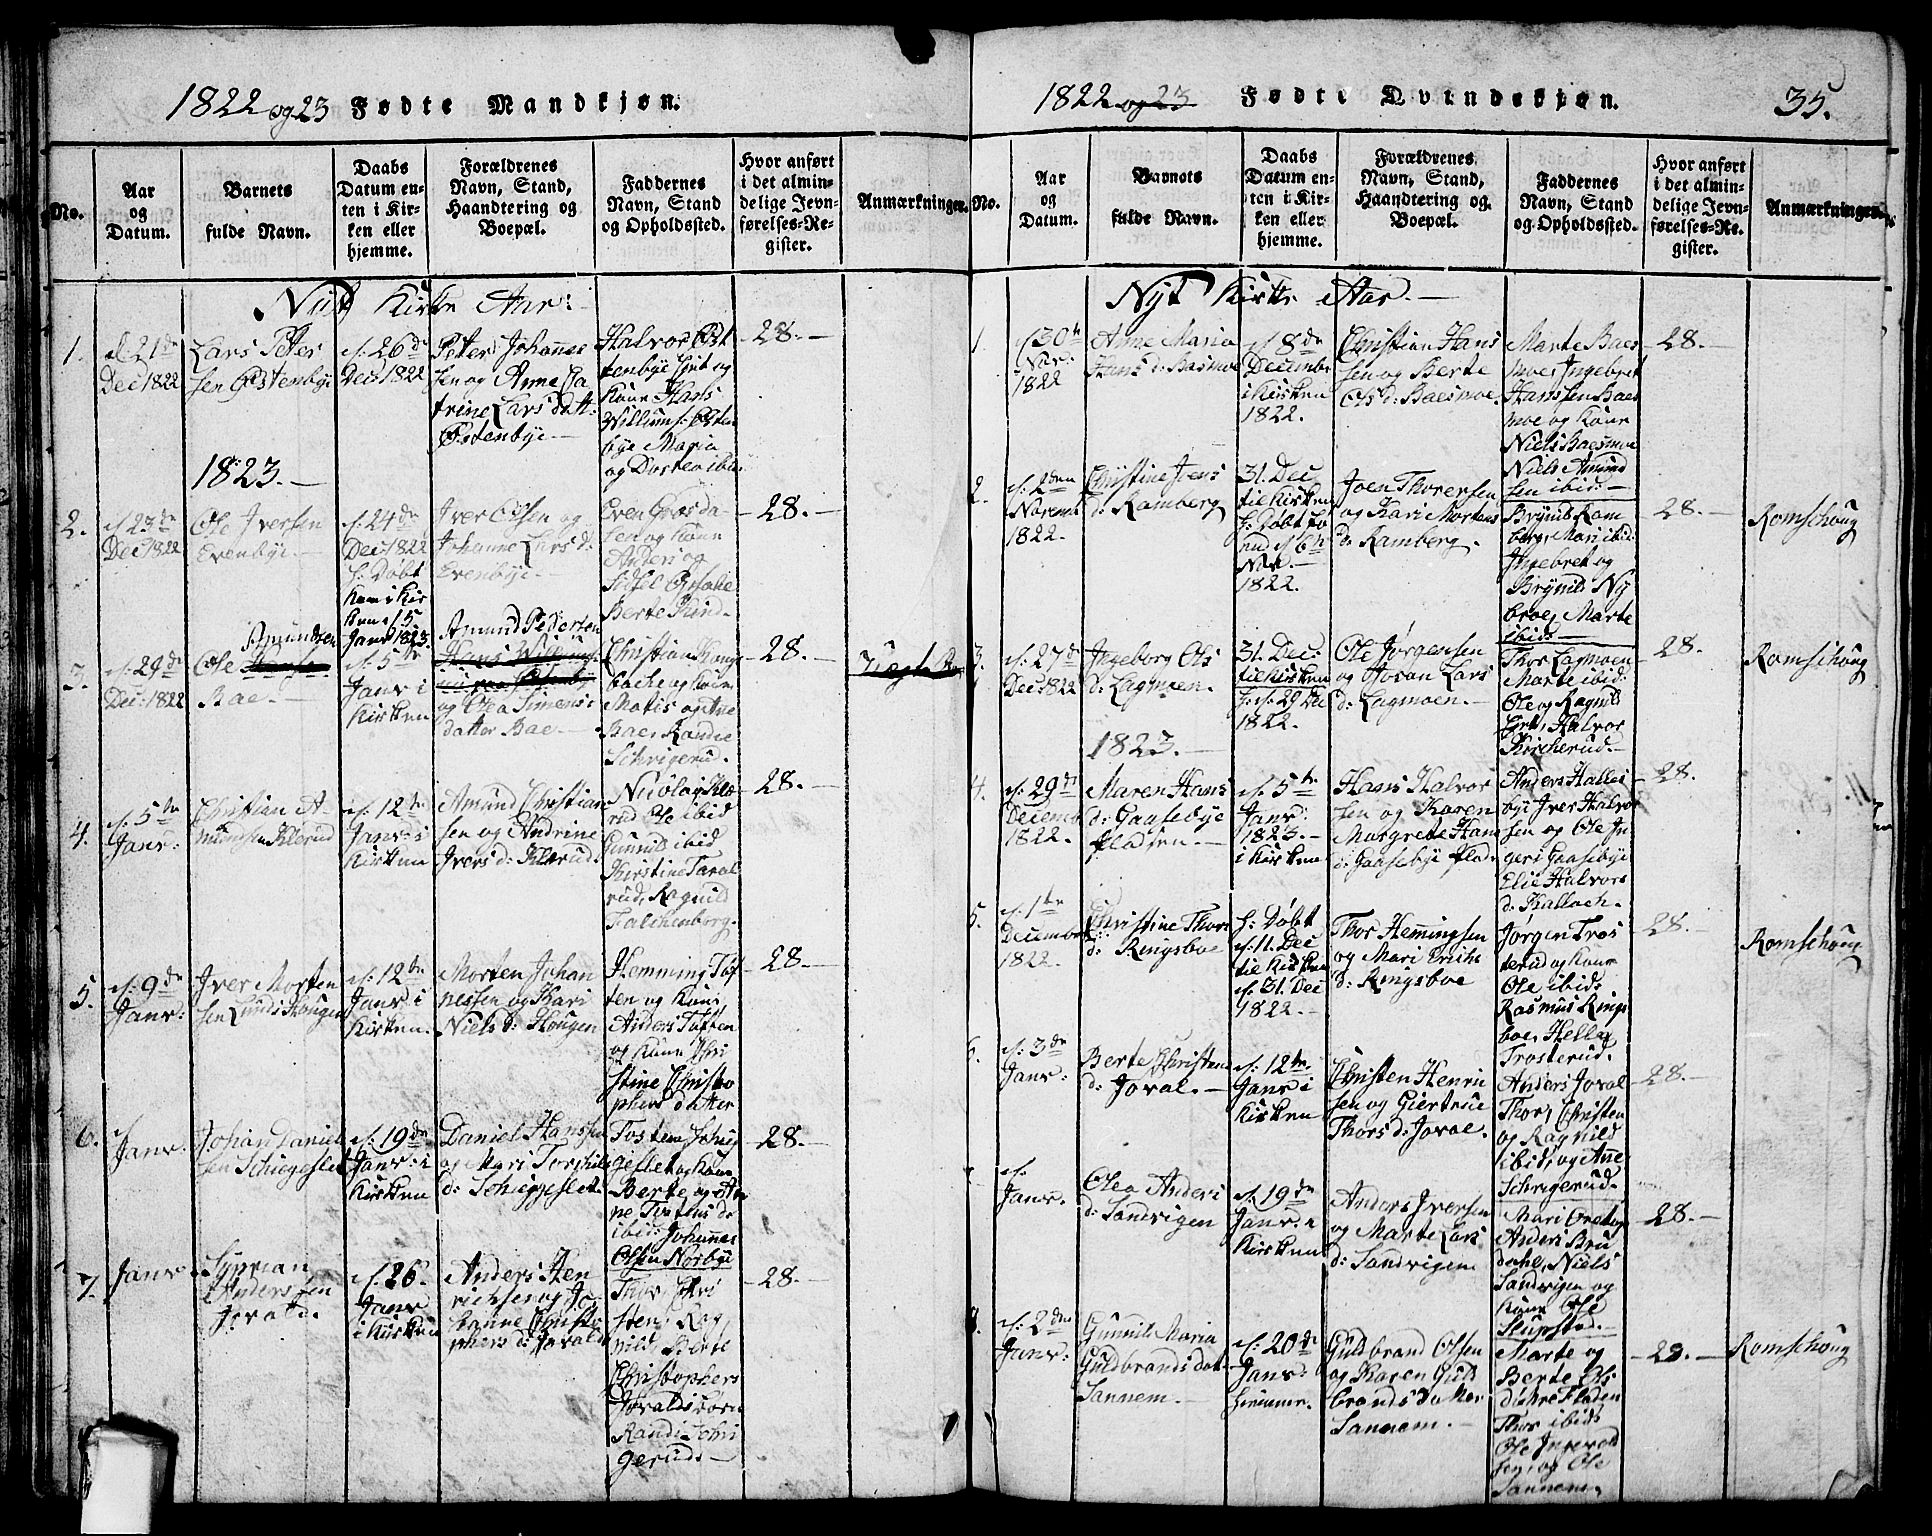 1822 og 23 Fødte Mandkjøn.
No.
Aar
og
Datum.
Barnets
fulde Navn.
Daabs
Datum en-
ten i Kir-
ken eller
hjemme.
Forældrenes
Navn, Stand,
Haandtering og
Boepæl.
Faddernes
Navn, Stand
og Opholdssted.
Hvor anført
i det almin-
delige Jevn-
førelses-Re-
gister.
Anmærkninger.
Nyt Kirke Aar:
1.
d. 21de
Dec 1822
Lars Peter
sen Østenbye
d. 26de
Dec 1822
Peter Johannes
sen og Anne Ca
trine Lars datt:
Østenbye.—
Halvor Øst
tenbye Eiet og
Kone Hans
Willums: Østen
bye Maria
og Dorthea ibid
28.—
1823.—
2.
d. 23de
Dec 1822
Ole Iversen
Evenbye.—
d. 24de
Dec 1822
H: Døbt
Kom i Kir
ken 15
Janv 1823.
Iver Olsen og
Johanne Lars d.
Evenbye.—
Even
sen og Kone
Anders og
Sidsel
Berte
28.—
3.
d. 29de
Dec: 1822
Amundsen
Ole
Bae.—
d. 5te
Janv i
Kirken
Amund Pedersen
og Olea Simens
datter Bae.—
Christian Haug
backe og Kone
Matis og Ane
Bae, Randie
Schrigerud.—
28.—
4.
d. 5te
Janv:
Christian A-
mundsen Klerud
d. 12te
Janv: i
Kirken
Amund Christian
sen og Andrine
Ivers d: Klerud.
Nicolay Kle
rud Ole ibid
Gunnil ibid
Kirstine Taral
rud, Ragnild
Falchenborg.
28.—
5.
d. 9de
Janv:
Iver Morten
sen Lunds Hougen
d. 12te
Janv i
Kirken.
Morten Johan
nessen og Kari
Niels d: Hougen
Hemming Tøf
ten og Kone
Anders Tøften
og Kone Chri
stine Christo
phers datter
28.—
6.
Janv.
Johan Daniel
sen Schieggeslet
d. 19de
Janv: i
Kirken
Daniel Hanssen
og Mari Torchils
d: Schieggeslet.
Tosten Schieg
geslet og Kone
Berte og An
ne Tostens d:
ibid: Johannes
Olsen Norbye
28.—
7.
Janv.
Syprian
Anderssen
Jorald.
d. 26.
Janv
i Kirken
Anders Hen
richsen og Jo
hanne Christo
phers d: Jorald
Thor Chri
sten, Rag
nild, Berte
Christophers
Joralds børn
Randi Schri
gerud.—
28.—
1822 og 23 Fødte Qvindekjøn.
35.
No.
Aar
og
Datum.
Barnets
fulde Navn.
Daabs
Datum en-
ten i Kir-
ken eller
hjemme.
Forældrenes
Navn, Stand,
Haandtering og
Boepæl.
Faddernes
Navn, Stand
og Opholdssted.
Hvor anført
i det almin-
delige Jevn-
førelses-Re-
gister.
Anmærkninger.
Nyt Kirke Aar.—
1.
d. 30te
Nov:
1822
Anne Maria
Hans d: Basmoe
d. 8de
Decembr
i Kirken
1822.
Christian Hans
sen og Berte
Ols d: Baesmoe.
Marte Baes
moe, Ingebret
Hanssen Baes
moe og Kone
Niels Baesmoe
Niels Amund
sen ibid:—
28.—
2.
d. 2den
Novemb
1822.
Christine Joens
d: Ramberg
31. Dec
til Kirken
H: Døbt fo
rud d. 6te
Nov.—
1822.
Joen Thorersen
og Kari Mortens
d: Ramberg.
Brynil Ram
berg, Mari ibid:
Ingebret og
Brynild Ny
broe, Marte
ibid:—
28.—
Romschoug
3.
d. 27de
Dec: 1822
Ingeborg Ols
d: Lagmoen.
31. Dec:
til Kirken
H: d. 29 De
1822.
Ole Jørgensen
og Johan Lars
d: Lagmoen.—
Thor Lagmoen
Marte ibid:
Ole og Ragnild
Eri, Halvor
Kircherud.—
28.
Romschoug
1823.—
4.
d. 29de
Decemb
1822.
Maren Hans
d: Gaasebye
pladsen.—
d. 5te
Janv:
1823.—
i Kirken
Hans Halvor
sen og Karen
Margrete Hans
d: Gaasebye plads
Anders Halles
bye Iver Halvor
sen og Ole In
geri Gaasebye
Elie Halvors
d. Kallach.
28.
5.
d. 1te
Decembr
1822.
Christine Thors
d: Ringsboe
H: Døbt
d. 11. Dec
til Kirken
d. 31. Dec
1822.
Thor Hemingsen
og Mari Erichs
d: Ringsboe
Jørgen Tros
terud og Kone
Ole ibid:
Rasmus Rings
boe, Helle
Trosterud.
28.—
Romschoug
6.
d. 3de
Janv:
Berte Christens
d: Joval.—
d. 12te
Janv i
Kirken
Christen Henric
sen og Giertrue
Thors d: Joval.
Anders Joval
Thor, Christen
og Ragnild
ibid, og Anne
Schrigerud.
28.—
d.
Janv.
Olea Anders
d: Sandvigen
d. 19de
Janv: i
Kirken
Anders Iversen
og Marte Lars
d: Sandvigen
Mari
Anders Bru
dahl, Niels
Sandvigen og
Kone Ole
Slupstad.
28.—
8.
d. 2den
Janv:
Gunnild Maria
Guldbrands dat
Sannem.—
d. 20de
Janv:
hiemme.
Guldbrand Olsen
og Karen Guld
brands d:
Sannem.—
Marte og
Berte Ols
Thor ibid:
Ole Ingevold
sen, og Ole
Sannem.
28.—
Romschoug